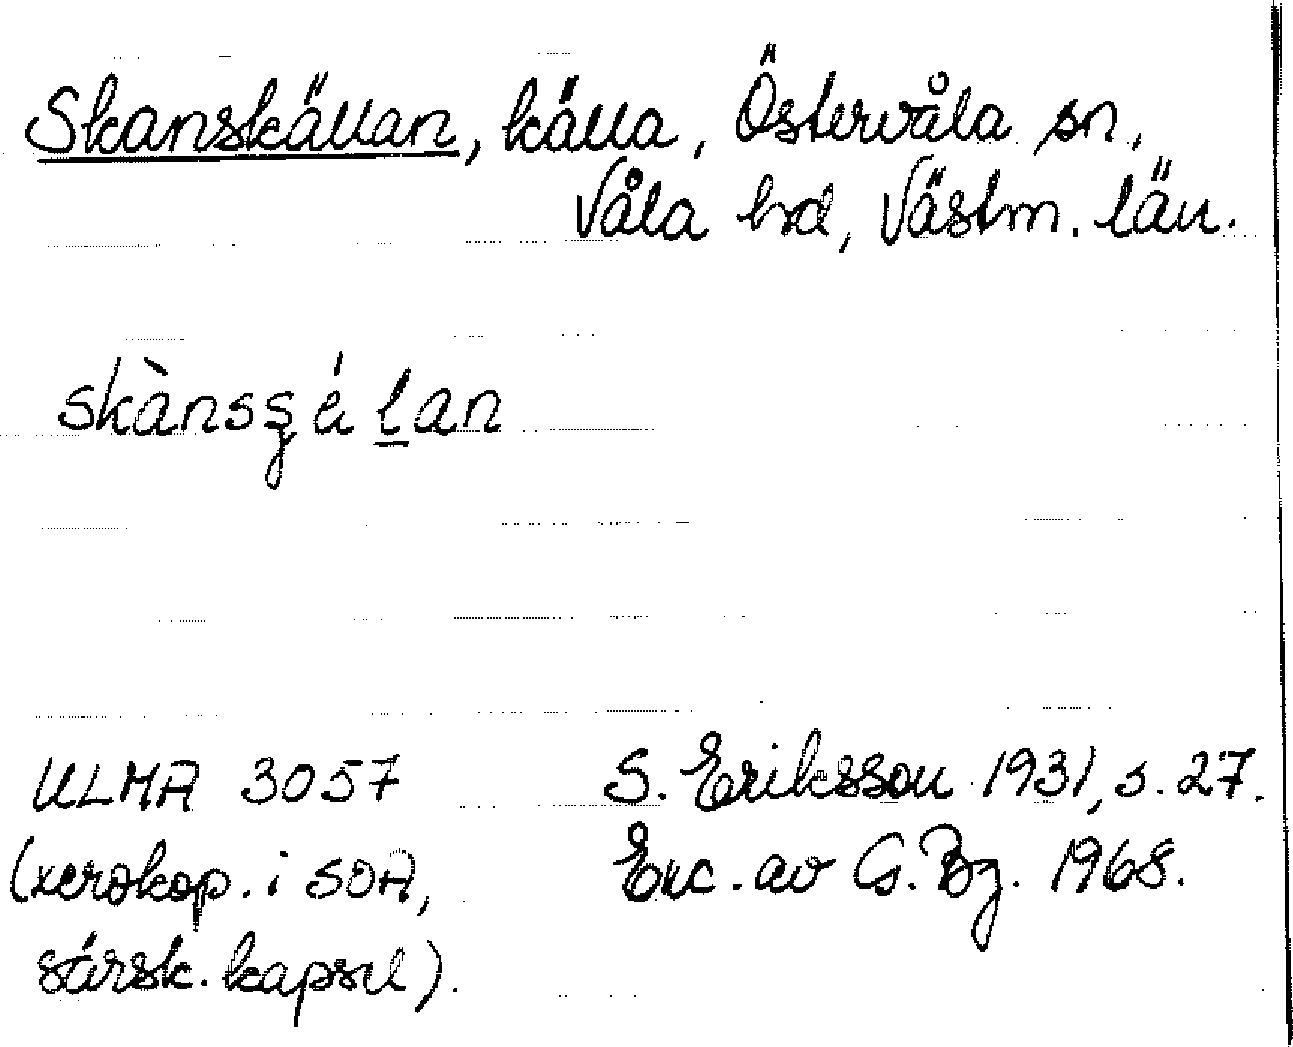 Skanskällan, källa, Östervåla sn,
Våla hd, Västm. län.
skànsʂélan
ULMA 3057
(xerokop. i SOA,
särsk. kapsel).
S. Eriksson 1931, s. 27.
Exc. av G. Bg. 1968.